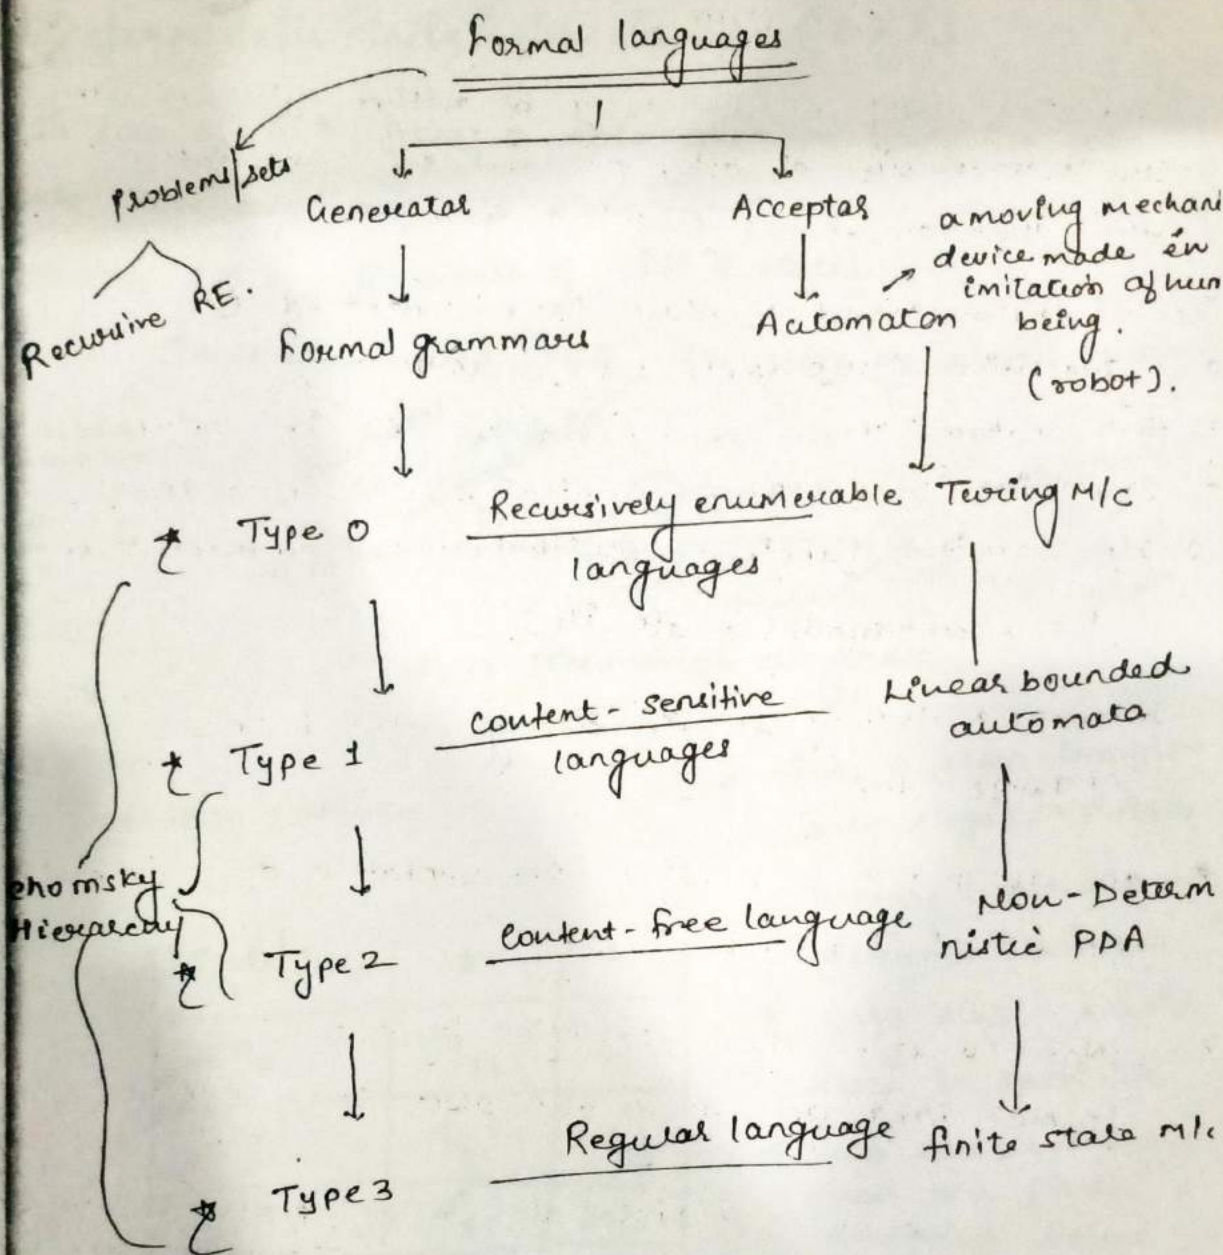 Formal languages
Problems/sets
Generator
Acceptor
a moving mechani
device made in
imitation of hum
being.
(robot).
Recursive RE.
Formal grammars
Automaton
Type 0 Recursively enumerable Turing M/c
languages
Type 1 Content-sensitive Linear bounded
languages automata
Chomsky
Hierarchy
Type 2 Content-free language Non-Determ
nistic PDA
Type 3 Regular language finite state M/c